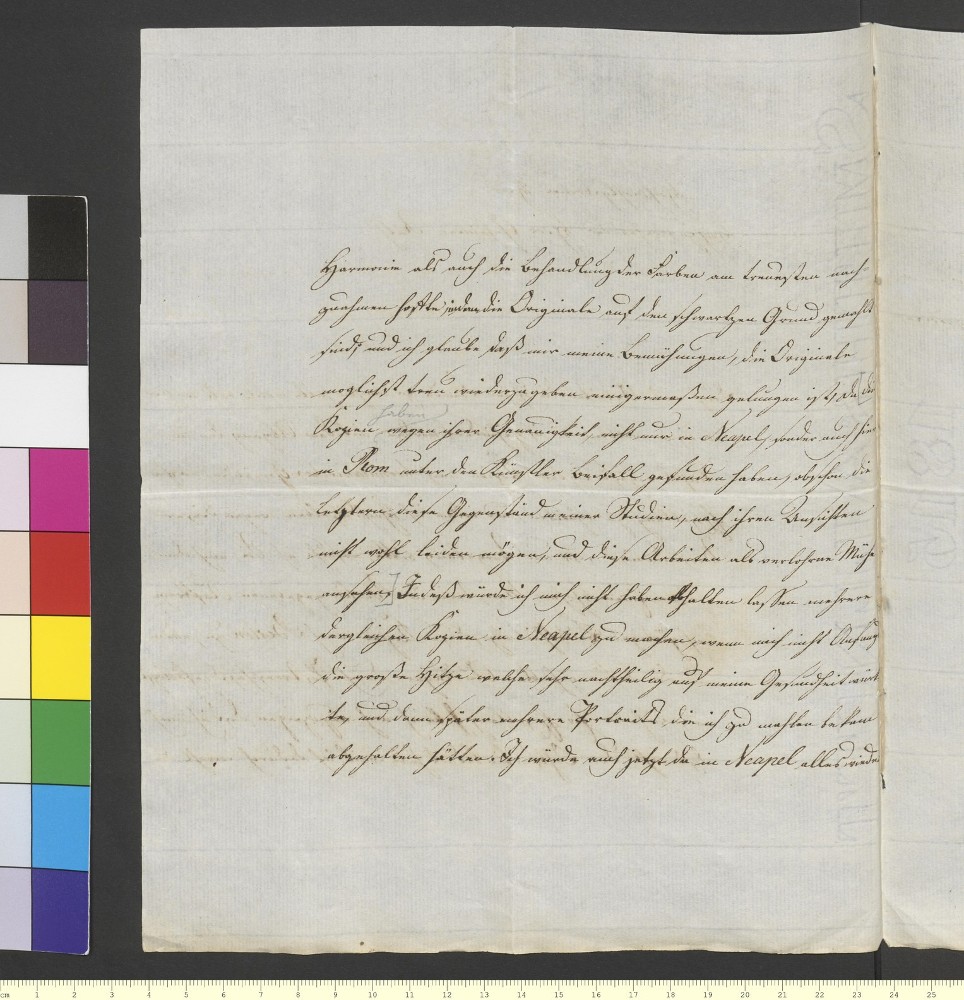 Harmonie als auch die Behandlung der Farben am treuesten nach-
zuahmen hoffte, indem die Originale auf den schwartzen Grund gemahlt
sind, und ich glaube daß mir meine Bemühungen, die Originale
moglichst treu wiederzugeben einigermaßen gelungen ist, da die
haben
Kopien wegen ihrer Genauigkeit, nicht nur in Neapel, sonder auch hier
in Rom unter den Künstler Beifall gefunden haben, obschon die
letztern diese Gegenständ meiner Studien, nach ihren Ansichten
nicht wohl leiden mögen, und diese Arbeiten als verlohrne Mühe
ansehen. Indeß würde ich mich nicht haben abhalten lassen mehrere
dergleichen Kopien in Neapel zu machen, wenn mich nicht Anfangs
die große Hitze welche sehr nachtheilig auf meine Gesundheit würk
te, und dann später mehrere Portraits die ich zu mahlen bekam
abgehalten hätten. Ich würde auch jetzt da in Neapel alles wieder